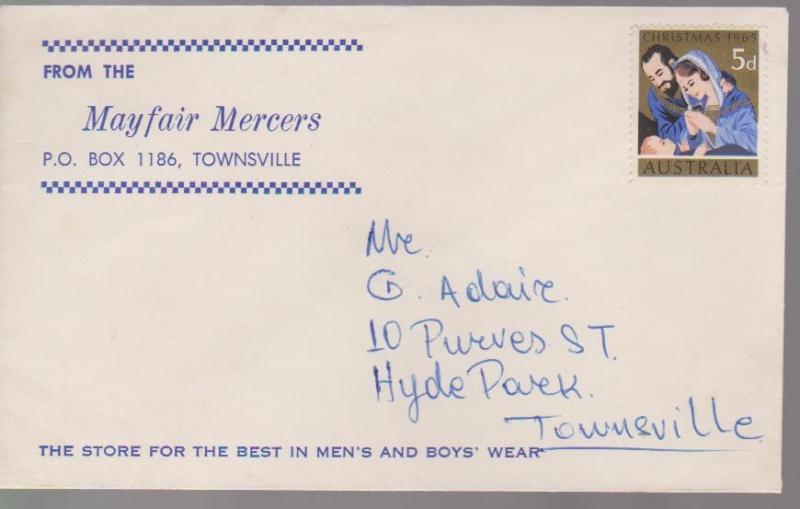 FROM THE
Mayfair Mercers
P.O. BOX 1186, TOWNSVILLE
CHRISTMAS 1965
5d
AUSTRALIA
Mr.
G. Adair.
10 Purves ST.
Hyde Park.
Townsville
THE STORE FOR THE BEST IN MEN'S AND BOYS' WEAR